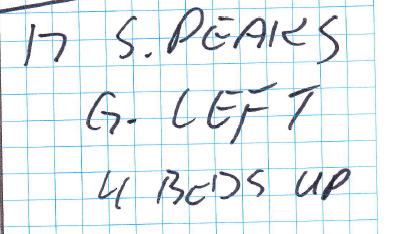 17 S. PEAKS
G. LEFT
4 BEDS UP